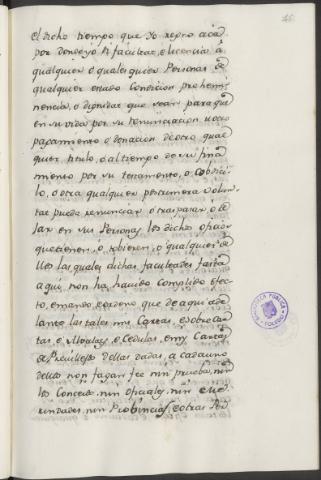 el dicho tiempo que yo regno acá
por donde yo di facultad, e licencia á
qualquier o qualesquier Personas de
qualquier estado Condicion prehemi-
nencia, o dignidad que sean para que
en su vida por su renunciacion u otro
o donacion de otro qual
quier titulo, o al tiempo de su fina
miento por su testamento, o Cobdici-
lo, o otra qualquier postrimera volun-
tad pueda renunciar o traspasar o de
xar en sus Personas los dichos oficios
que tienen, o tobieren, o qualquier de
llos las quales dichas facultades fasta
aqui non há havido complido efec-
to, e mando, e ordeno que de aqui ade
lante las tales mis Cartas, e sobrecar-
tas, e Alvalaes, e Cedulas, e mis Cartas
dellas dadas, a cada uno
dellos non fagan fee nin prueba, nin
los Concejos nin oficiales, nin Me-
rindades, nin Provincias, e otras
BIBLIOTECA PUBLICA
TOLEDO